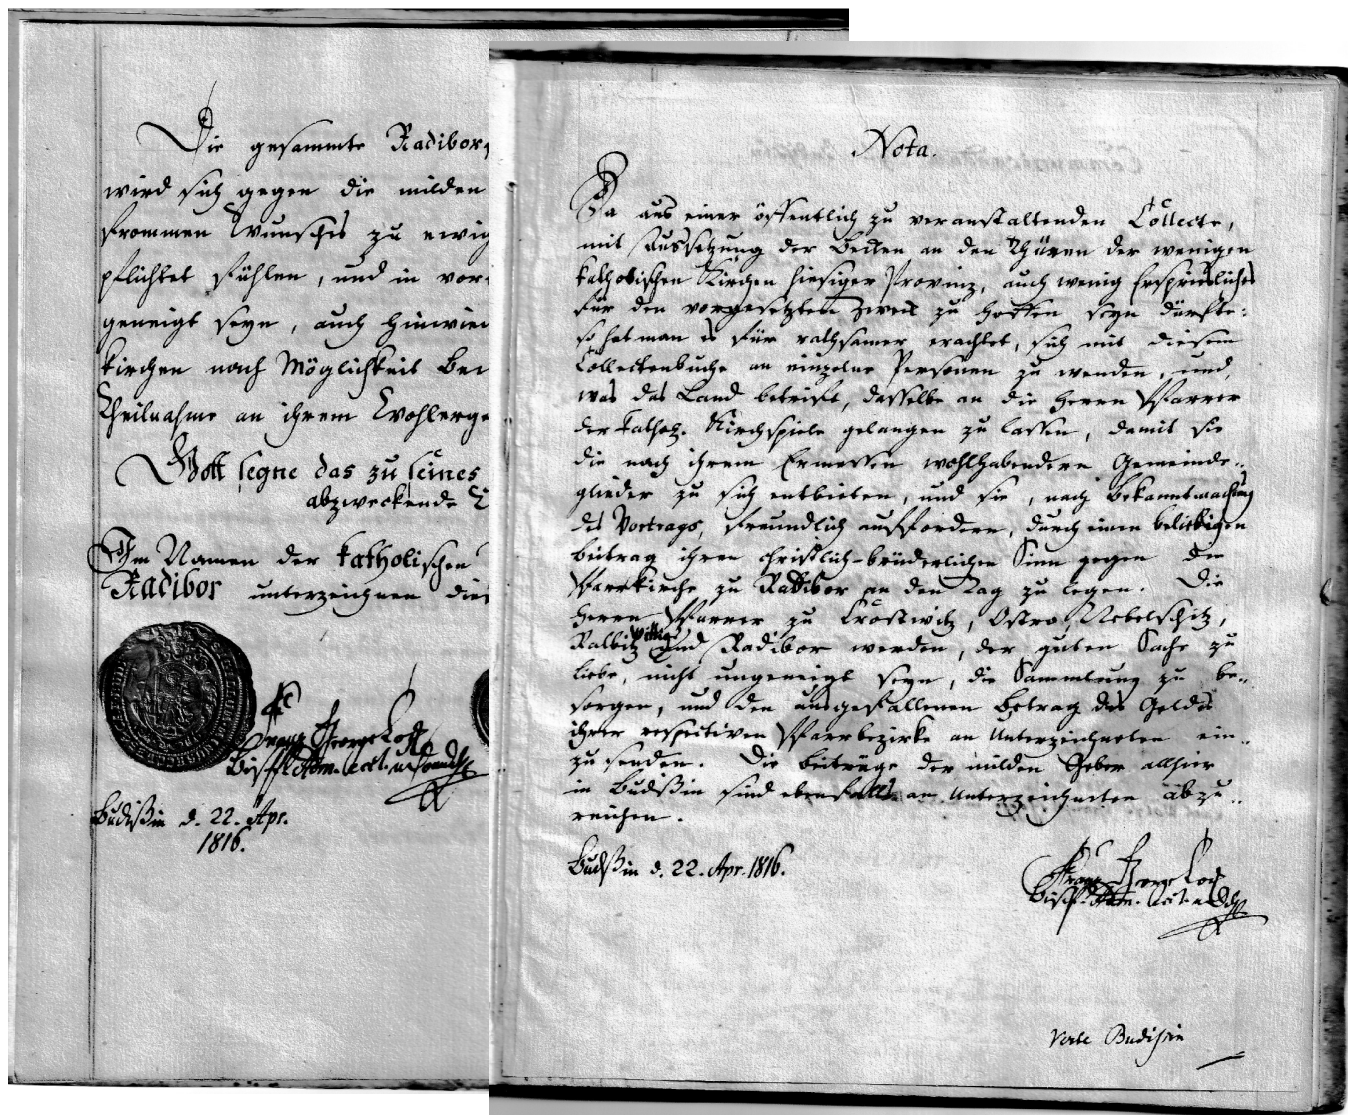 Die gesammte Radibor
wird sich gegen die milden
frommen Wunsches zu ewig
pflichtet fühlen, und in vor
geneigt seyn, auch hinwied
kirchen nach Möglichkeit bei
Theilnahme an ihrem Wohlerge
Gott segne das zu seines
abzweckende
Im Namen der katholischen
Radibor unterzeichnen dies
Franz George Lock
Bischfl.
Budißin d. 22. Apr.
1816.
Nota.
Da aus einer öffentlich zu veranstaltenden Collecte,
mit Aussetzung der Becken an den Thüren der wenigen
katholischen Kirchen hiesiger Provinz, auch wenig Ersprießliches
für den vorgesetzten Zweck zu hoffen seyn dürfte:
so hat man es für rathsamer erachtet, sich mit diesem
Collectenbuche an einzelne Personen zu wenden, und,
was das Land betrift, dasselbe an die Herrn Pfarrer
der kathol. Kirchspiele gelangen zu lassen, damit sie
die nach ihrem Ermessen wohlhabendern Gemeinde-
glieder zu sich entbieten, und sie, nach Bekanntmachung
des Vortrags, freundlich auffordern, durch einen beliebigen
Beitrag ihren christlich-brüderlichen Sinn gegen die
Pfarrkirche zu Radibor an den Tag zu legen. Die
Herrn Pfarrer zu Crostwitz, Ostro, Nebelschitz,
Ralbitz, Wittig und Radibor werden, der guten Sache zu
liebe, nicht ungeneigt seyn, die Sammlung zu be-
sorgen, und den ausgefallenen Betrag des Geldes
ihrer respectiven Pfarrbezirke an Unterzeichneten ein-
zusenden. Die Beiträge der milden Geber allhier
in Budißin sind ebenfalls an Unterzeichneten abzu-
reichen.
Budißin d. 22. Apr. 1816.
Franz George Lock
Bischfl.
Budißin